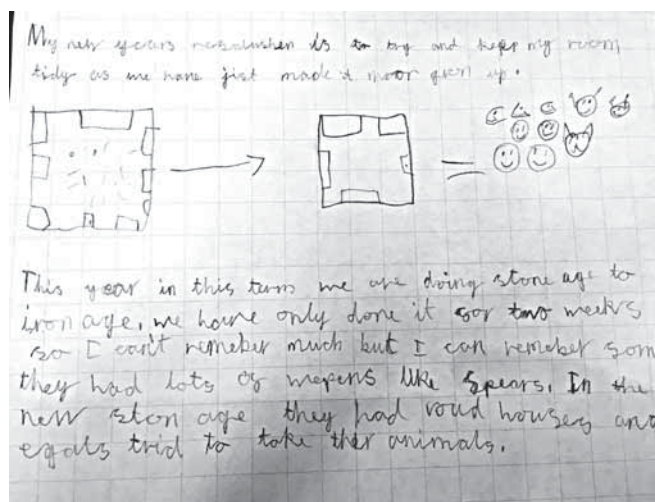 My new years resalushen is to try and keep my room
tidy as we have jist made it moor gron up.
This year in this term we are doing stone age to
iron age, we have only done it for two weeks
so I can't remeber much but I can remeber som
they had lots of wepens like spears. In the
new ston age they had roud houses and
egals trid to take ther animals.